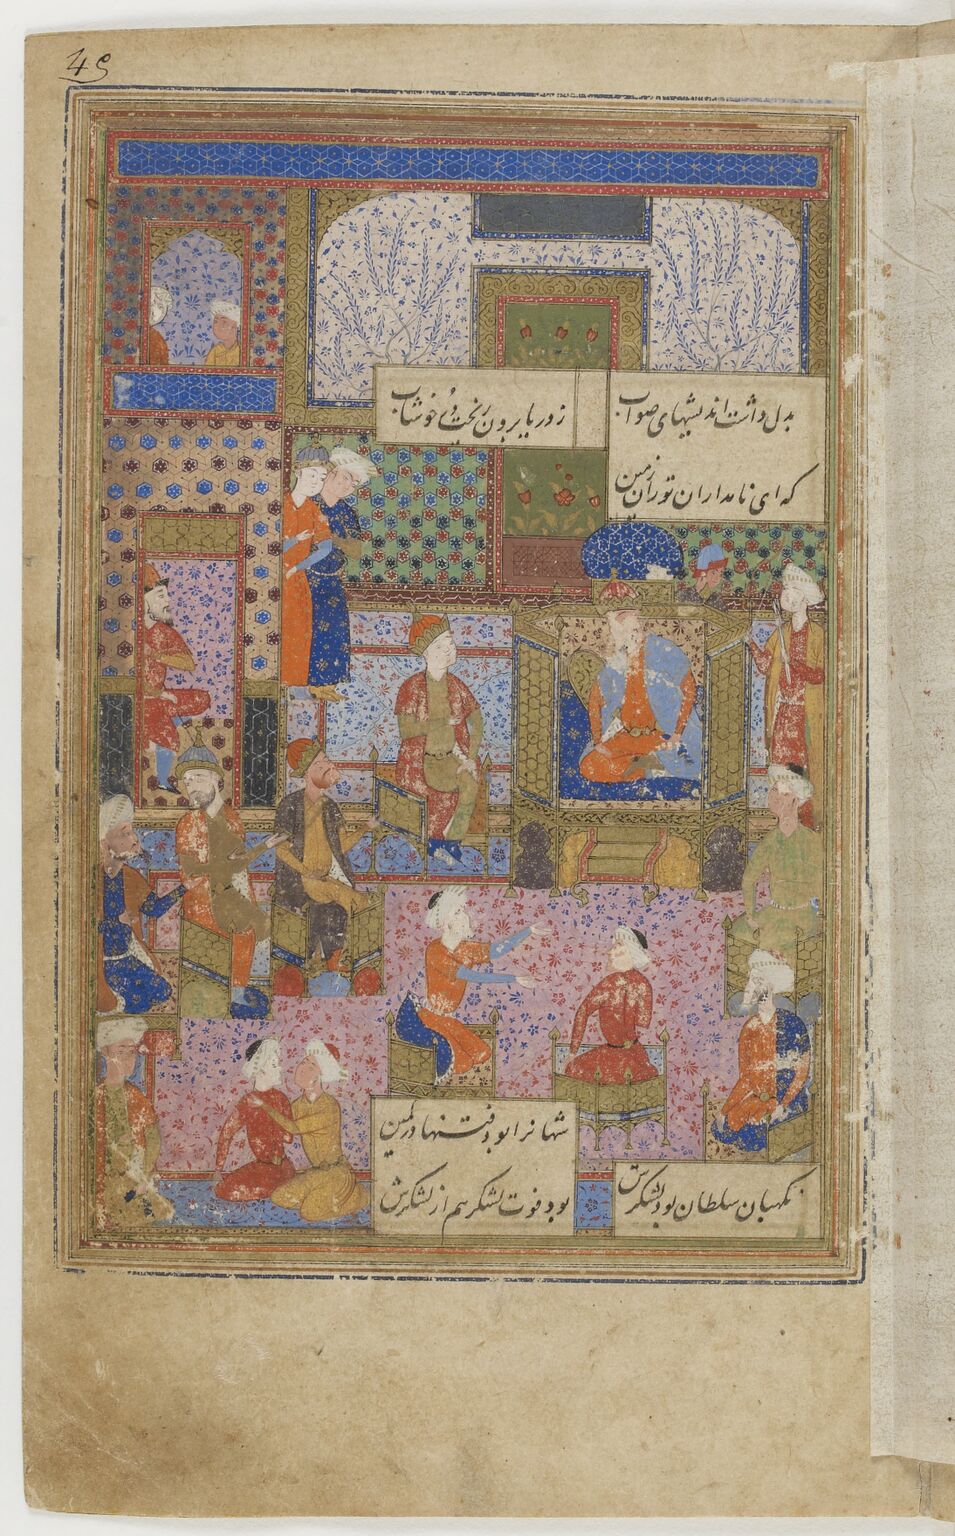 49
بدل داشت اندیشهای صواب
ز دریا برون ریخت دُر خوشاب
که ای نامداران توران زمین
شهانرا بود فتنها در کمین
نگهبان سلطان بود لشکرش
بود قوت لشکر هم از لشکرش